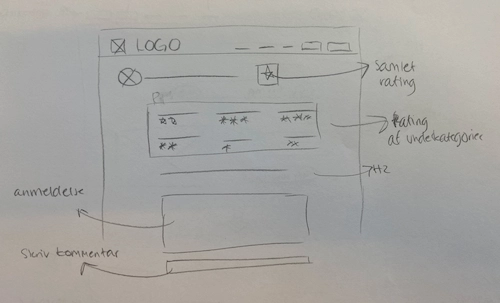 LOGO
samlet
rating
Rating
af underkategorier
H2
anmeldelse
skriv kommentar